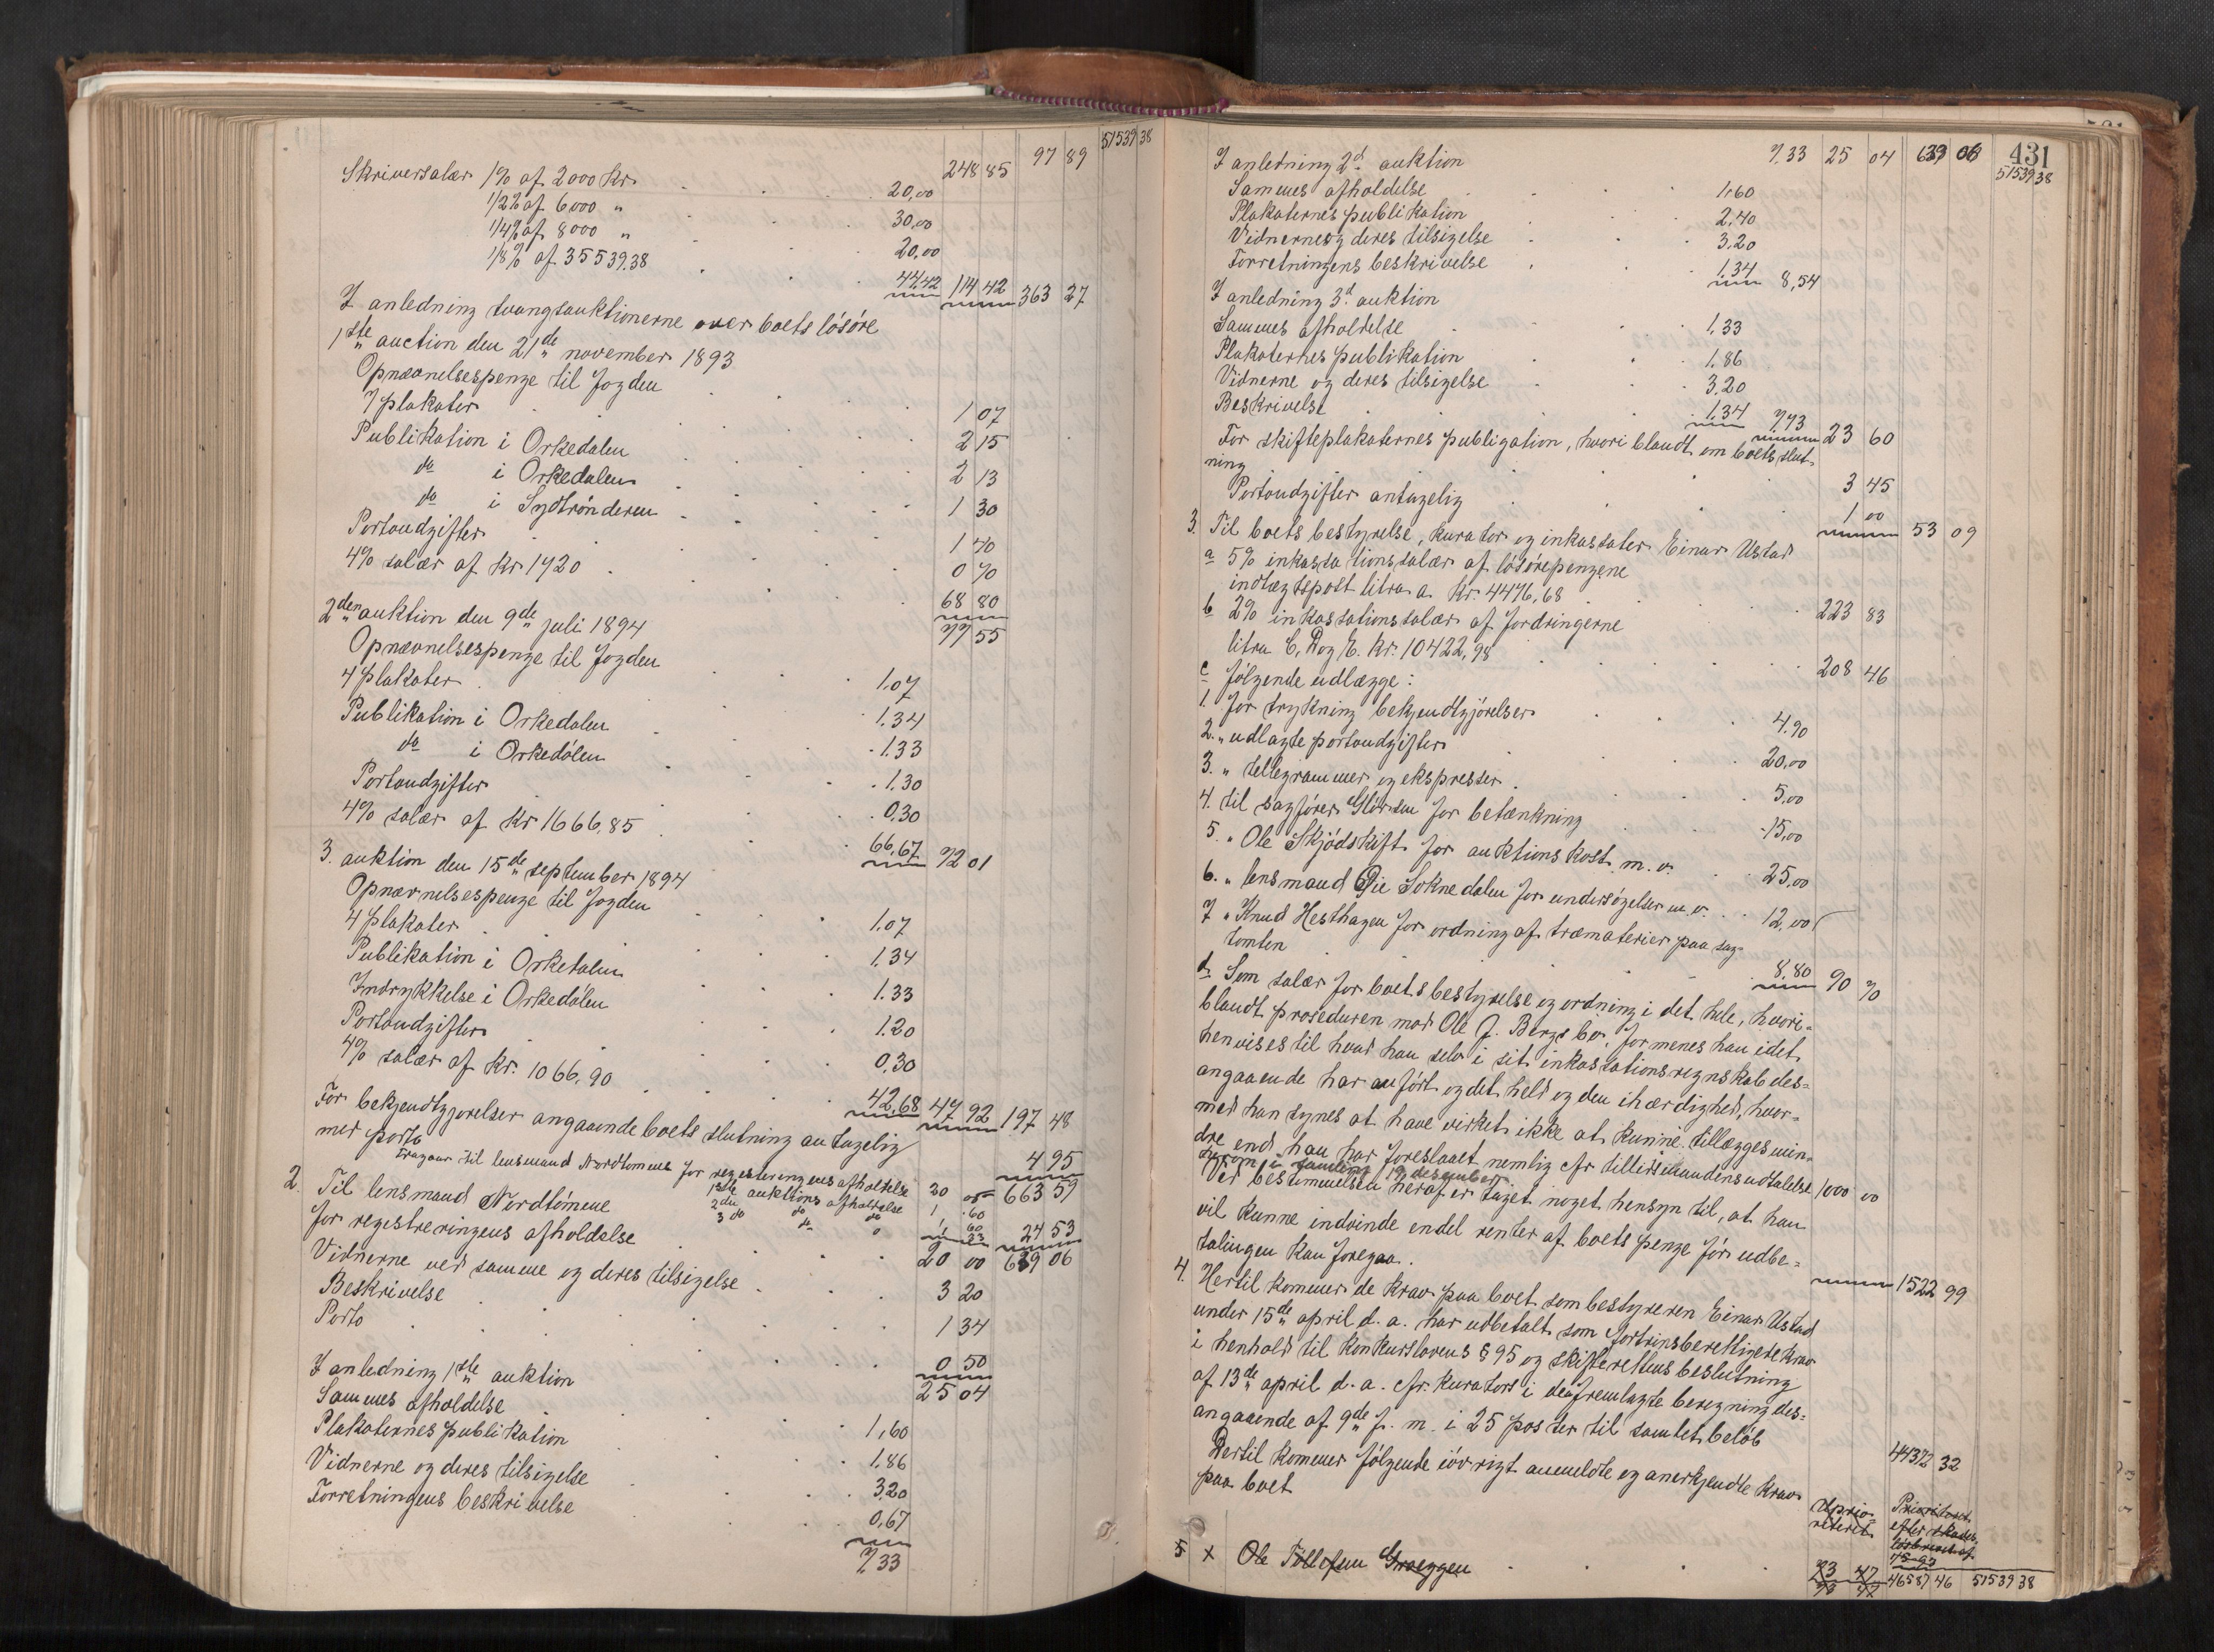 97 89 51539 38
248 85
Skriversalær 1% af 2000 Kr. 20,00
1/2% af 6000 " 30,00
1/4% af 8000 " 20,00
1/8% af 35539.38 44.42 114 42 363 27
I anledning tvangsauktionerne over boets løsøre
1ste auction den 21de november 1893
Opnævnelsespenge til fogden 1 07
7 plakater 2 15
Publikation i Orkedalen 2 13
do i Orkedølen 1 30
do i Sydtrønderen 1 70
Portoudgifter 0 70
4% salær af Kr 1720 68 80
77 55
2den auktion den 9de juli 1894
Opnævnelsespenge til fogden 1.07
4 plakater 1.34
Publikation i Orkedalen 1.33
do i Orkedølen 1.30
Portoudgifter 0.30
4% salær af Kr 1666.85 66,67 72 01
3. auktion den 15de september 1894
Opnævnelsespenge til fogden 1.07
4 plakater 1.34
Publikation i Orkedalen 1.33
Indrykkelse i Orkedølen 1.20
Portoudgifter 0.30
4% salær af Kr. 1066,90 42,68 47 92 197 48
For bekjendtgjørelser angaaende boets slutning antagelig
med porto 4 95
663 59
Fragaar til lensmand Nordtømme for registeringens afholdelse 20 00
1ste auktions afholdelse 1 60
2den do do 1 60
3 do do 1 33 24 53
639 06
2. Til lensmand Nordtømme
for registreringens afholdelse 20 00
Vidnerne ved samme og deres tilsigelse 3 20
Beskrivelse 1 34
Porto 0 50
25 04
I anledning 1ste auktion
Sammes afholdelse 1,60
Plakaternes publikation 1.86
Vidnerne og deres tilsigelse 3.20
Forretningens beskrivelse 0,67
7,33
431
7,33 25 04 639 06 51539 38
I anledning 2d auktion
Sammes afholdelse 1.60
Plakaternes publikation 2.40
Vidnerne og deres tilsigelse 3.20
Forretningens beskrivelse 1.34 8,54
I anledning 3d auktion
Sammes afholdelse 1.33
Plakaternes publikation 1.86
Vidnerne og deres tilsigelse 3.20
Beskrivelse 1.34 7,73 23 60
For skifteplakaternes publigation, hvori blandt om boets slut-
ning 3 45
Portoudgifter antagelig 1 00 53 09
3. Til boets bestyrelse, kurator og inkassator Einar Ustad
a 5% inkassationssalær af løsørepengene
indtægtspost litra a Kr. 4476,68 223 83
b 2% inkassationssalær af fordringerne
litra C, D og E. Kr. 10422,98 208 46
c følgende udlægge:
1. for trykning bekjendtgjørelser 4.90
2. " udlagte portoudgifter 20,00
3. " tellegrammer og ekspresser 5,00
4. til sagfører for betænkning 15,00
5. " Ole Skjødskift for auktionskost m.v. 25,00
6. " lensmand Øie Soknedalen for undersøgelser m.v. 12,00
7. " Knud Hesthagen for ordning af træmaterier paa sag-
tomten 8.80 90 70
d Som salær for boets bestyrelse og ordning i det hele, hvori-
blandt proseduren mod Ole J. Bergs bo, formenes han idet
henvises til hvad han selv i sit inkassationsregnskab des-
angaaende har anført og det held og den ihærdighed, hvor-
med han synes at have virket ikke at kunne tillægges min-
dre end han har foreslaaet nemlig cfr tillidsmandens udtalelse 1000 00
herom i samling 19 desember
Ved bestemmelsen heraf er taget noget hensyn til, at han
vil kunne indvinde endel renter af boets penge før udbe-
talingen kan foregaa. 1522 99
4. Hertil kommer de krav paa boet som bestyreren Einar Ustad
under 15de april d.a. har udbetalt som fortrinsberettigede krav
i henhold til konkurslovens § 95 og skifterettens beslutning
af 13de april d.a. cfr. kurators i den fremlagte beregning des-
angaaende af 9de f.m. i 25 poster til samlet beløb 44372 32
Dertil kommer følgende iøvrigt anmeldte og anerkjendte krav
paa boet
Uprio-
riteret
Prioriteret
efter
5 x Ole Tollefsen 23 47
46587 46 51539 38